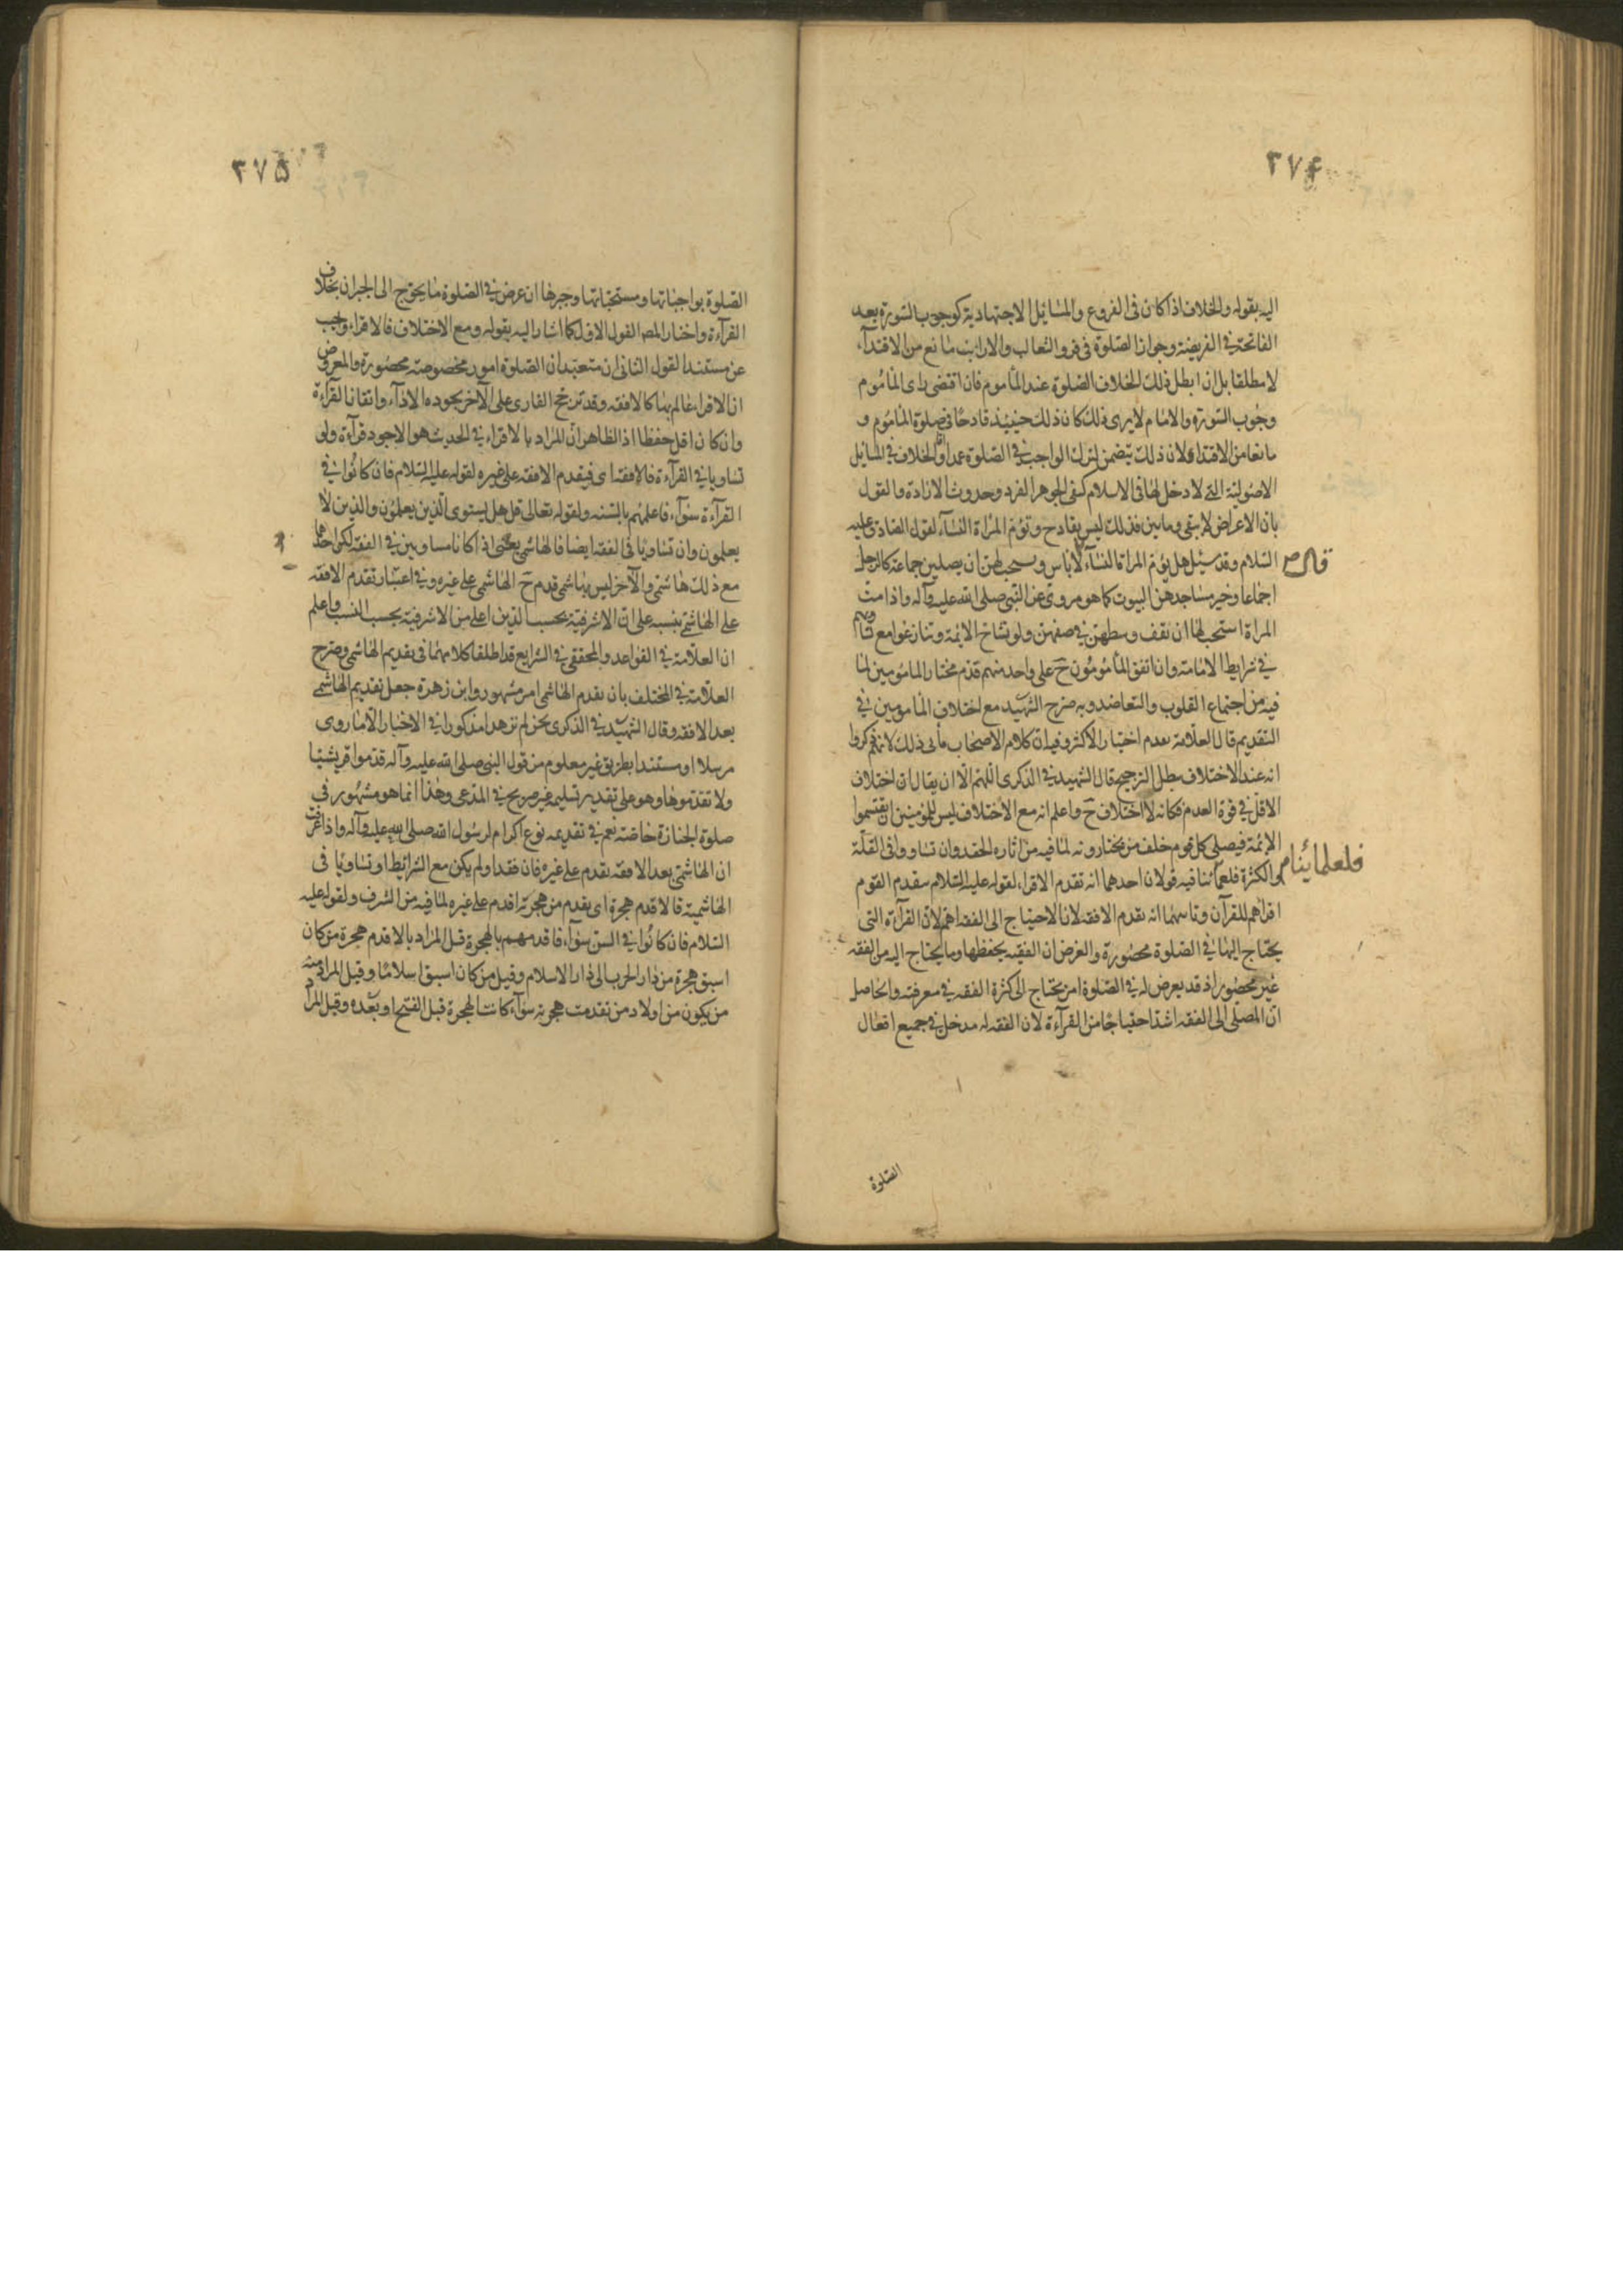 ۲۷۴
اليه بقوله والخلاف اذا كان فى الفروع والمسائل الاجتهادية كوجوب السورة بعد
الفاتحة فى الفريضة وجواز الصلوة فى فرو الثعالب والارانب مانع من الاقتدآء
لا مطلقا بل ان ابطل ذلك الخلاف الصلوة عند المأموم فان اقتضى راى المأموم
وجوب السورة والامام لا يرى ذلك كان ذلك حينئذ قادحا فى صلوة المأموم و
مانعا من الاقتداء لان ذلك يتضمن لترك الواجب فى الصلوة عمدا والخلاف فى المسائل
الاصولية التى لا دخل لها فى الاسلام كنفى الجوهر الفرد وحدوث الارادة والقول
بان الاعراض لا تبقى زمانين فذلك ليس بقادح وتؤم المرأة النسآء لقول الصادق عليه
السلام وقد سئل هل تؤم المراة النسآء لا باس ويستحب لهن ان يصلين جماعة كالرجل
قال م
اجماعا وخير مساجدهن البيوت كما هو مروى عن النبى صلى الله عليه وآله واذا امت
المراة استحب لها ان تقف وسطهن فى صفهن ولو تشاح الائمة وتنازعوا مع
فى شرايط الامامة وان اتفق المأمومون ح على واحد منهم قدم مختار المأمومين لما
فيه من اجتماع القلوب والتعاضد وبه صرح الشهيد مع اختلاف المأمومين فى
التقديم قال العلامة يقدم اختيار الاكثر وفيه ان كلام الاصحاب يأبى ذلك لانهم ذكروا
انه عند الاختلاف يطلب الترجيح قال الشهيد فى الذكرى اللهم الا ان يقال ان اختلاف
الاقل فى قوة العدم فكانه لا اختلاف ح واعلم انه مع الاختلاف ليس للمؤمنين ان يقتسموا
الائمة فيصلى كل قوم خلف من يختارونه لما فيه من اثارة الحقد وان تساووا فى القلة
والكثرة فلعلمائنا فيه قولان احدهما انه تقدم الاقراء لقوله عليه السلام يتقدم القوم
فلعلمائنا م
اقراهم للقرآن وثانيهما انه يقدم الافقه لان الاحتياج الى الفقه اهم لان القرآءة التى
يحتاج اليها فى الصلوة محصورة والغرض ان الفقيه يحفظها وما يحتاج اليه من الفقه
غير محصور اذ قد يعرض له فى الصلوة امر يحتاج الى كثرة الفقه فى معرفته والحاصل
ان المصلى الى الفقه اشد احتياجا من القرآءة لان الفقه له مدخل فى جميع افعال
الصلوة
۲۷۵
الصلوة بواجباتها ومستحباتها وجبرها ان عرض فى الصلوة ما يحوج الى الجبران بخلاف
القرآءة واختار المصـ القول الاول كما اشار اليه بقوله ومع الاختلاف فالاقراء واجيب
عن مستند القول الثانى ان متعبدات الصلوة امور مخصوصة محصورة والمعروض
ان الاقراء عالم بها كالافقه وقد ترجح القارى على الآخر بجوده الادآء واتقان القرآءة
وان كان اقل حفظا اذ الظاهر ان المراد بالاقراء فى الحديث هو الاجود قرآءة ولو
تساويا فى القرآءة فالافقه اى فيقدم الافقه على غيره لقوله عليه السلام فان كانوا فى
القرآءة سوآء فاعلمهم بالسنه ولقوله تعالى قل هل يستوى الذين يعلمون والذين لا
يعلمون وان تساويا فى الفقه ايضا فالهاشمى يعنى اذا كانا مساويين فى الفقه لكن احدهما
مع ذلك هاشمى والآخر ليس بهاشمى قدم ح الهاشمى على غيره وفى اعتبار تقدم الافقه
على الهاشمى تنبيه على ان الاشرفية بحسب الدين اعلى من الاشرفية بحسب النسب واعلم
ان العلامة فى القواعد والمحقق فى الشرايع قد اطلقا كلامهما فى تقديم الهاشمى وصرح
العلامة فى المختلف بان تقدم الهاشمى امر مشهور وابن زهرة جعل تقديم الهاشمى
بعد الافقه وقال الشهيد فى الذكرى نحن لم نر هذا مذكورا فى الاخبار الا ما روى
مرسلا او مستندا بطريق غير معلوم من قول النبى صلى الله عليه وآله قدموا قريشيا
ولا تقدموها وهو على تقدير تسليمه غير صريح فى المدعى وهذا انما هو مشهور فى
صلوة الجنازة خاصة نعم فى تقديمه نوع اكرام لرسول الله صلى الله عليه وآله واذا عرفت
ان الهاشمى بعد الافقه تقدم على غيره فان فقدا ولم يكن مع الشرائط او تساويا فى
الهاشمية فالاقدم هجرة اى يقدم من هجرته اقدم على غيره لما فيه من الشرف ولقوله عليه
السلام فان كانوا فى السن سوآء فاقدمهم بالهجرة قيل المراد بالاقدم هجرة من كان
اسبق هجرة من دار الحرب الى دار الاسلام وقيل من كان اسبق اسلاما وقيل المراد منه
من يكون من اولاد من تقدمت هجرته سوآء كانت الهجرة قبل الفتح او بعده وقيل المراد